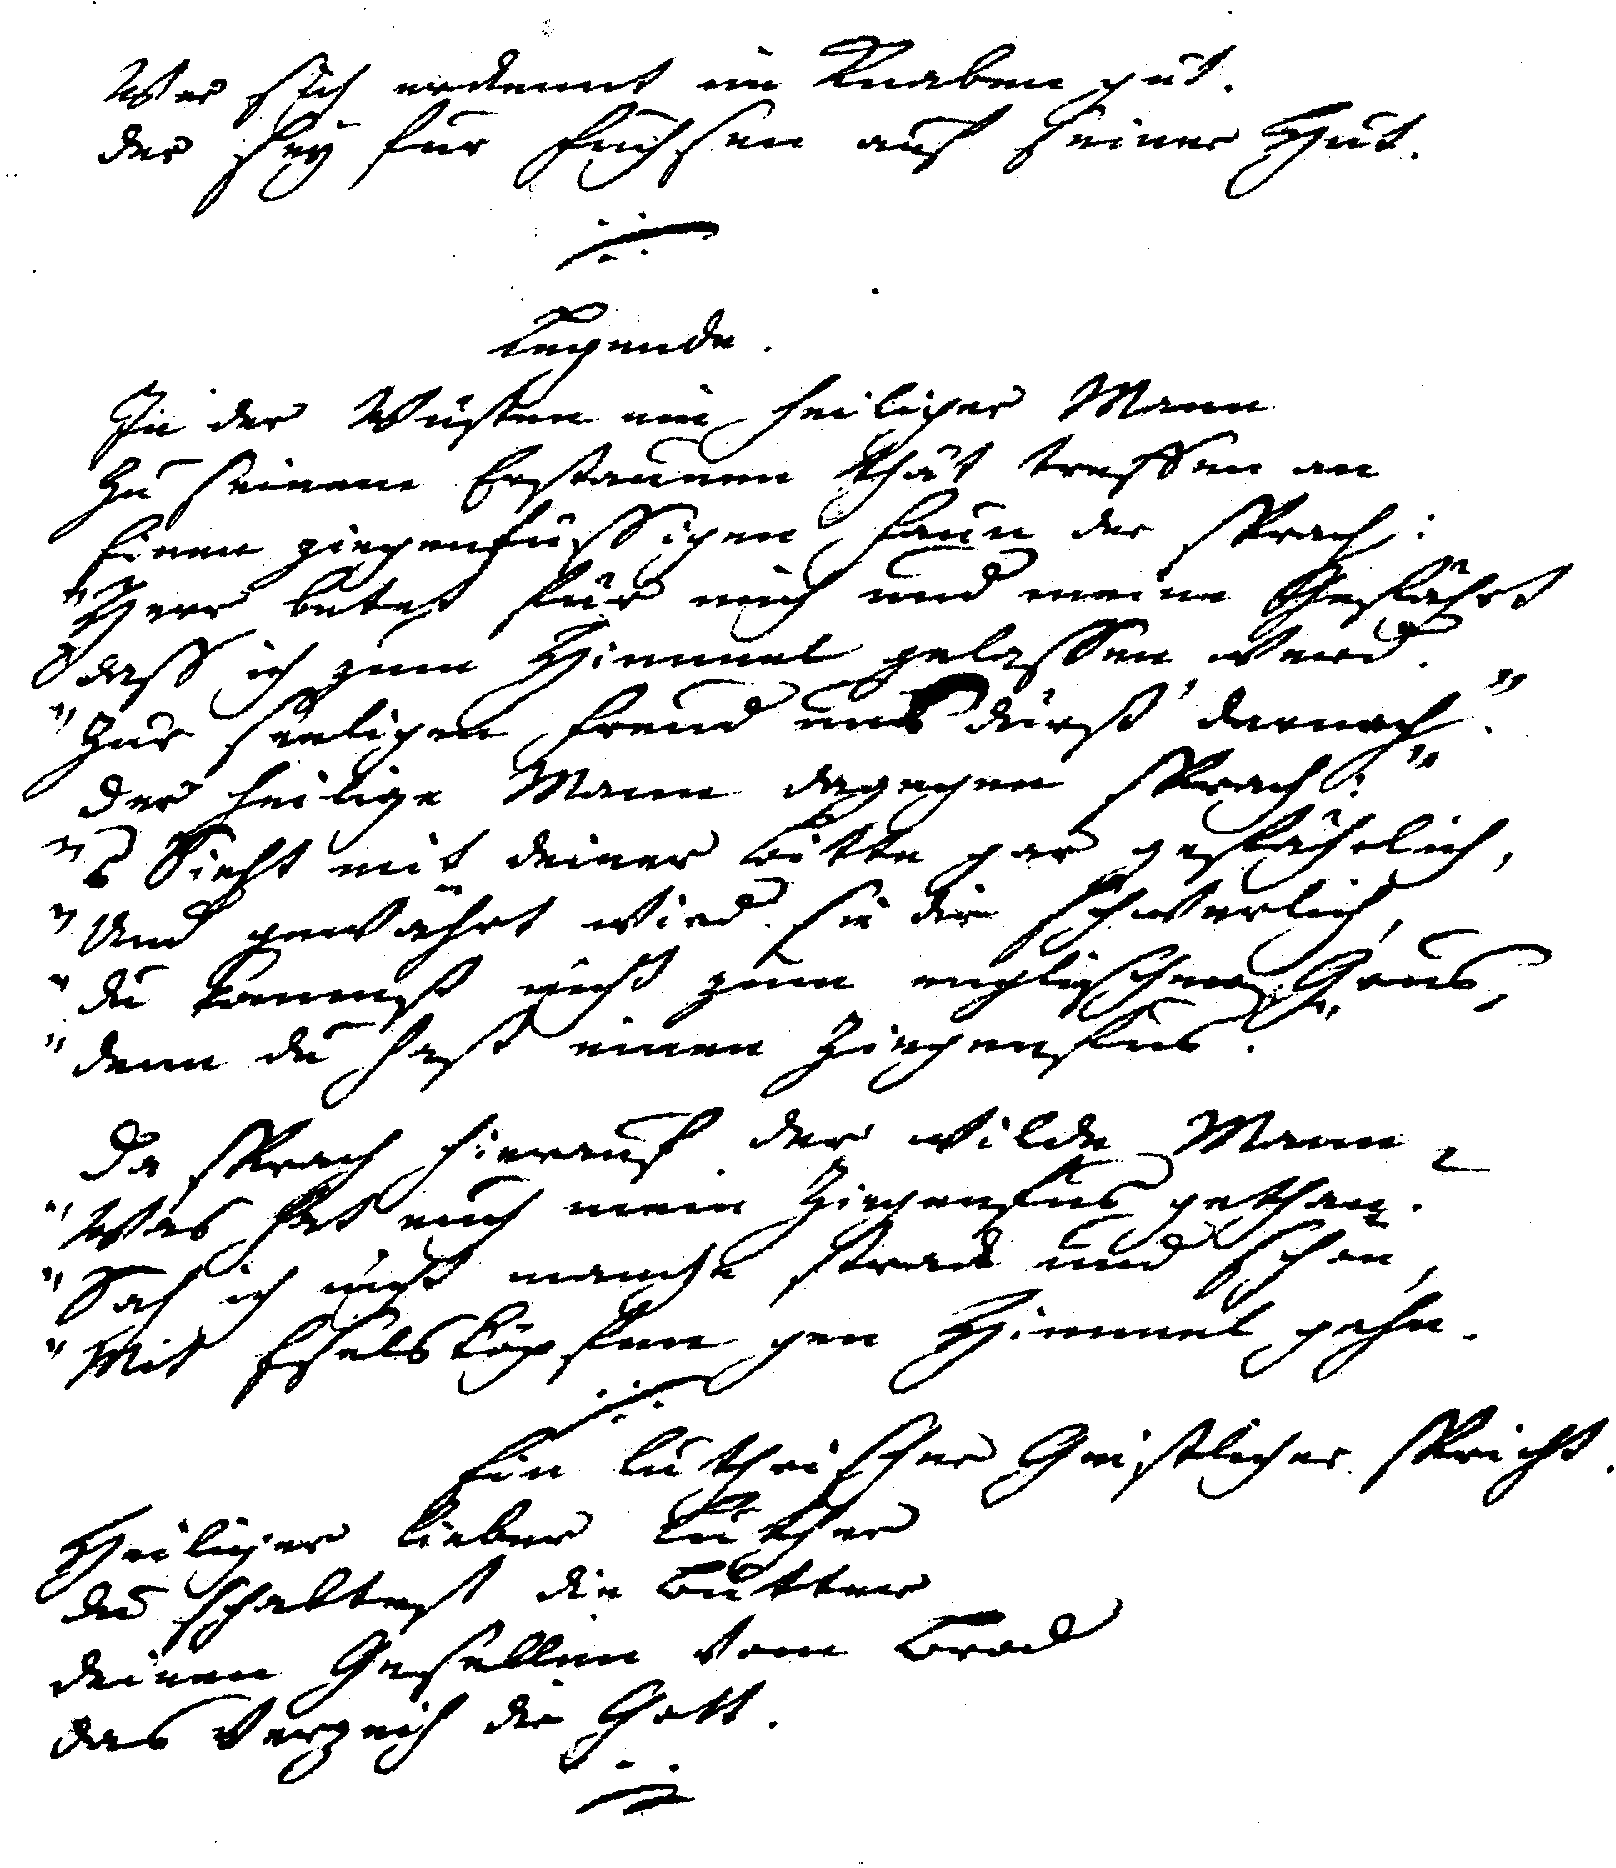 Wer sich erkennt im Knaben gut.
der sey für Füchsen auf seiner Hut.
Legende.
In der Wüsten ein heiliger Mann
Zu seinem Erstaunen thät treffen an
Einen ziegenfüssigen Faun der sprach:
"Herr betet für mich und meine Gefährt
"dass ich zum Himmel gelassen werd.
"Zur seeligen Freud uns dürst' darnach."
der heilige Mann dagegen sprach:"
"Es Sieht mit deiner Bitte gar gefährlich,
"Und gewährt wird sie dir schwerlich,
"du kommst nicht zum englischen Grus,
"denn du hast einen Ziegenfus."
Da sprach hierauf der wilde Mann
"Was hat euch mein Ziegenfus gethan?
"Sah ich nicht manche strack und schön,
"Mit Eselsköpfen gen Himmel gehn.
Ein luthrischer Geistlicher spricht.
Heiliger lieber Luther
du schabtest die Butter
deinen Gesellen vom Brod
das verzeih dir Gott.